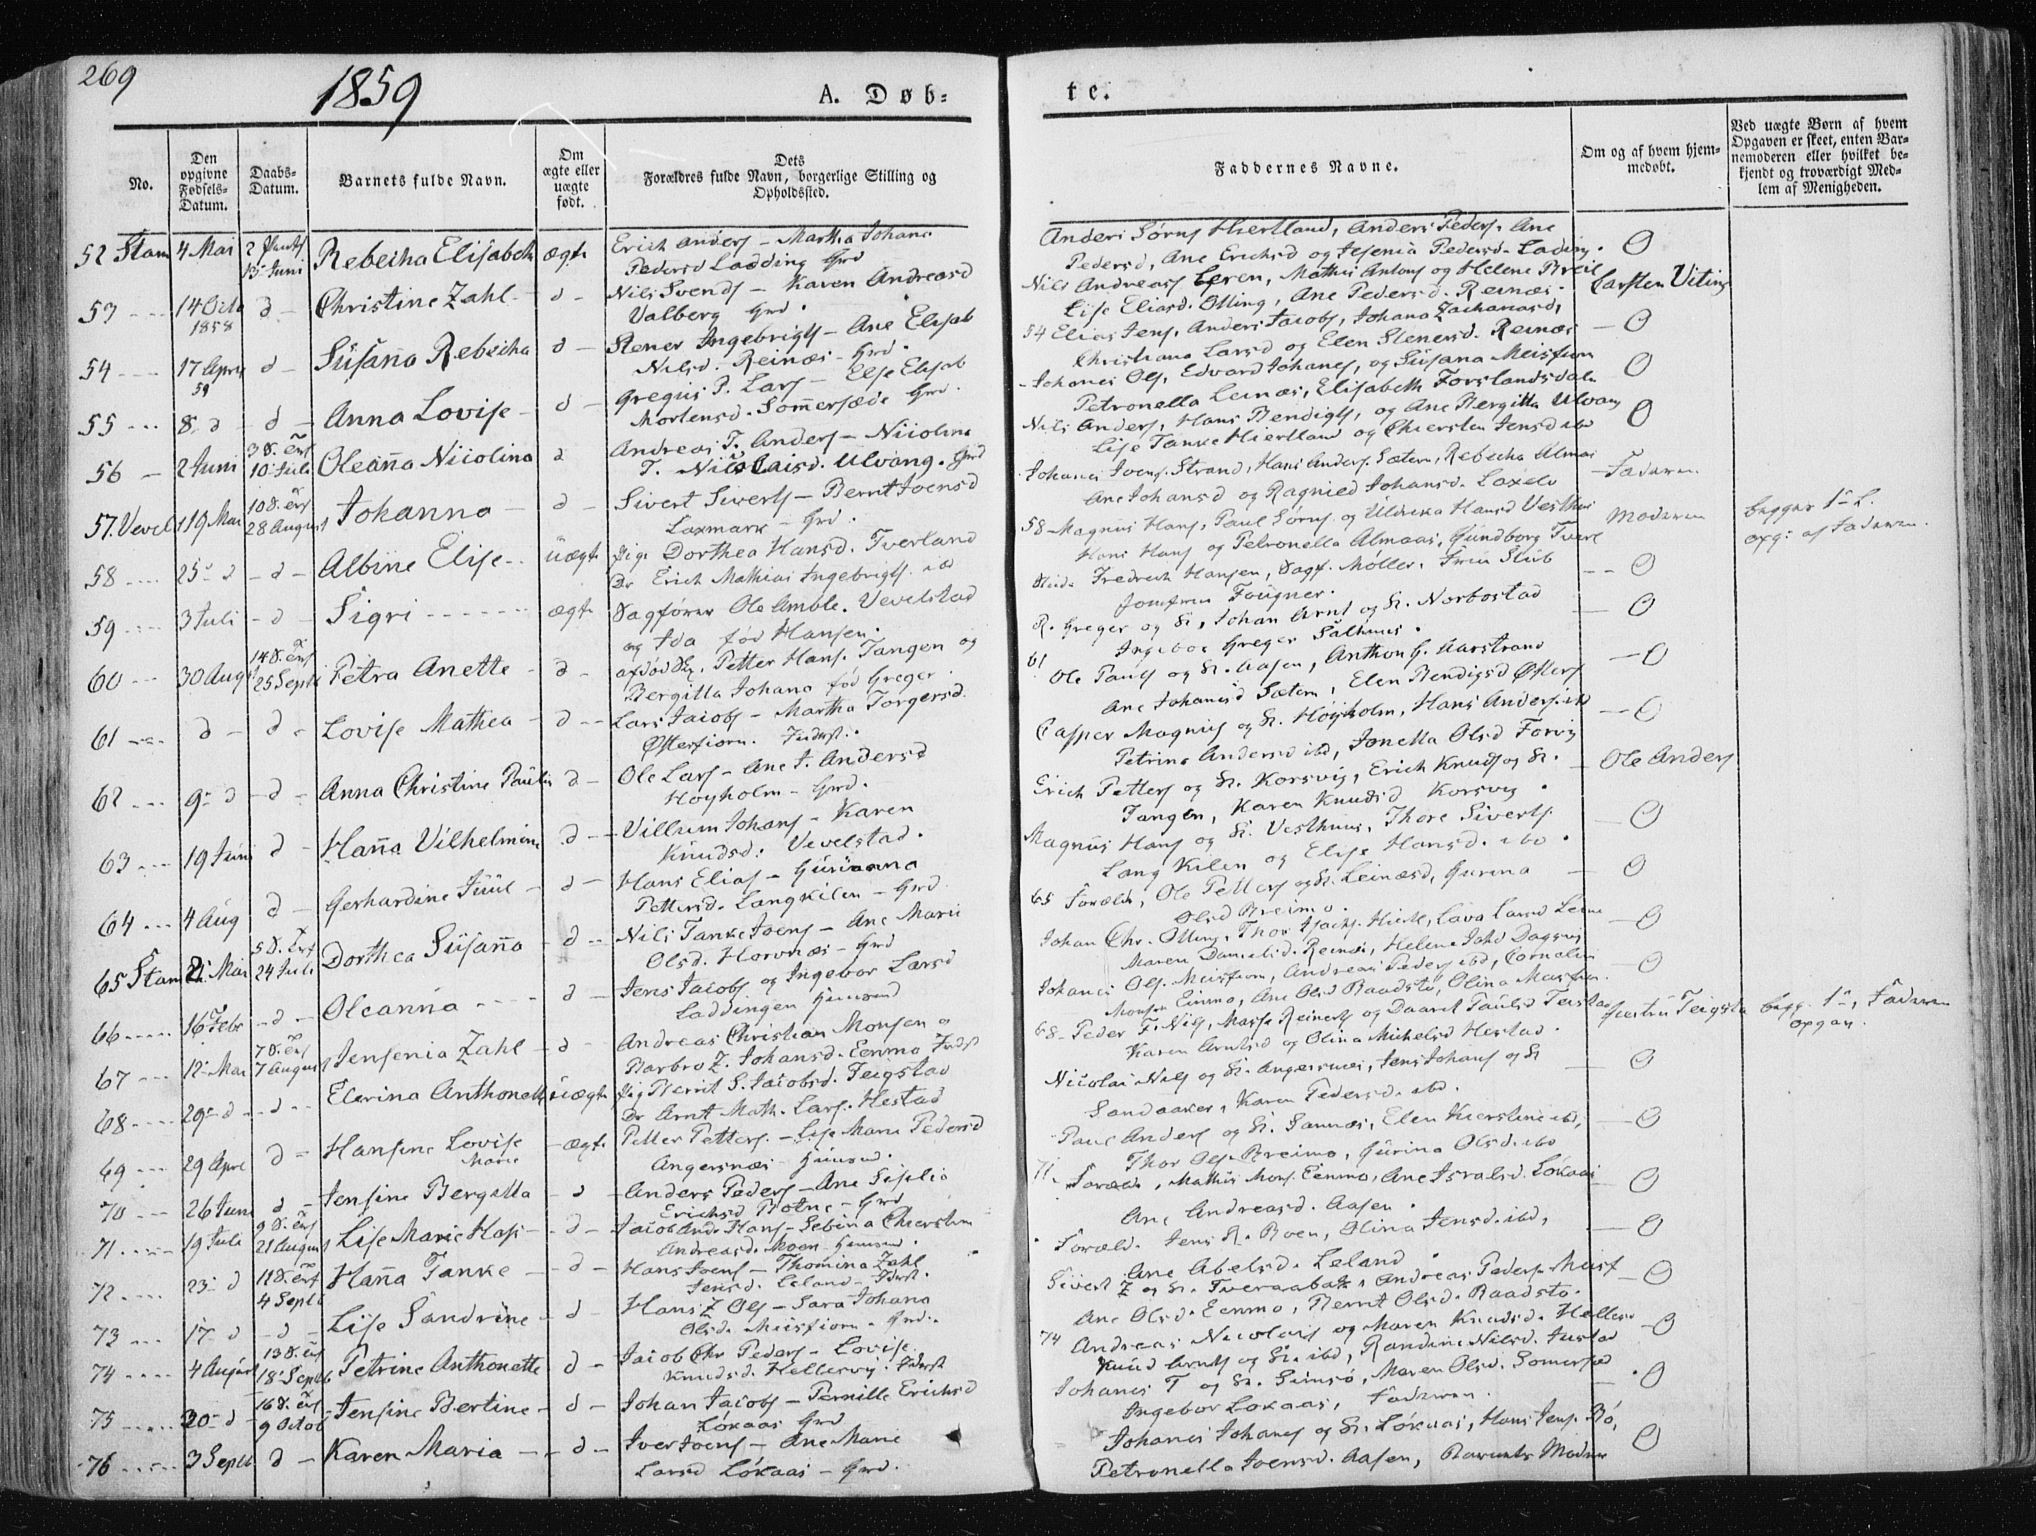 269
1859
A. Døb-
te.
No.
Den opgivne Fødsels-Datum.
Daabs-Datum.
Barnets fulde Navn.
Om ægte eller uægte født.
Dets Forældres fulde Navn, borgerlige Stilling og Opholdssted.
Faddernes Navne.
Om og af hvem hjem-medøbt.
Ved uægte Børn af hvem Opgaven er skeet, enten Bar-nemoderen eller hvilket be-kjendt og troværdigt Med-lem af Menigheden.
52 Stam 4 Mai 13 Juni Rebecha Elisabeth ægte Erich Anders - Martha Johana
Pedersd Ladding Grd
Anders Sørns Hiertland, Anders Peders. Ane
Pedersd, Ane Erichsd og Jesenia Pedersd. Lading. O
53 14 Octo 1858 d Christine Zahl d Nils Svends - Karen Andreasd
Valberg Grd
Nils Andreas Leren, Mathis Antons og Helene Breil
Lise Eliasd. Olling, Ane Pedersd. Reinæs. Carsten Viting
54 17 Apr 59 d Susaña Rebecha d Stener Ingebrigts - Ane Elisab
Nilsd. Reinæs - Grd.
54 Elias Jens, Anders Jacobs, Johana Zachariasd,
Christiana Larsd og Elen Stenersd. Reinæs O
55 8 d d Anna Lovise d Gregus P. Lars - Else Elisab
Mortensd. Sommersæde Grd
Johanes Ols, Edvard Johanes, og Susana Meisfiorn
Petronella Leinæs, Elisabeth Forslandsdaln O
56 2 Juni 10 Juli Oleaña Nicolina d Andreas T. Anders - Nicolina
T. Nilslaisd. Ulvang. Grd
Nils Anders, Hans Bendigts, og Ane Bergitta Ulvang
Lise Tanke Hiertland og Chiersten Jensd ibd O
57. Vevel 19 Mai 28 August Johanna d Sivert Siverts - Bernt Joensd
Laxmark - Grd.
Johanes Joens. Strand, Hans Anders. Sætern, Rebecha Almaas
Ane Johansd og Ragnild Johansd. Laxelv Faderen
58 25 d d Albine Elise uægte Pige Dorthea Hansd. Tverland
Er Erich Mathias Ingebrigts. ibd
58 Magnus Hans, Paul Sørns og Uldrika Hansd Vesthus
Hans Hans og Petronella Almaas, Gundborg Tverl Moderen begges 1ste L.
opg: af Faderen.
59 3 Juli d Sigri ægte Sagfører Ole Amble. Vevelstad
og Ida fød Hansen.
Fredrich Hansen, Sagf. Møller. Frue Stub
Jomfru Fougner. O
60 30 Aug 25 Septb Petra Anette d afdød Petter Hans. Tangen og
Bergitta Johana fød Greger
R. Greger og K., Johan Arnt og K. Norbostad
Ingebor Greger Salhuus. O
61 d d Lovise Mathea d Lars Jacobs - Martha Torgersd.
Østerfiorn. Inderst.
61 Ole Pauls og K. Aasen, Anthon G. Aarstrand
Ane Johansd Sætern, Elen Bendigsd Østerf O
62 9 d d Anna Christine Paulin d Ole Lars - Ane J. Andersd
Høyholm - Grd.
Casper Magnus og K. Høyholm, Hans Anders. ibd
Petrina Andersd ibd, Jonetta Olsd Forvig O
63 19 Juni d Haña Vilhelmine d Villum Johans - Karen
Knudsd: Vevelstad.
Erich Petters og K. Korsvig, Erich Knuds og K.
Tangen, Karen Knudsd Korsvig. Ole Anders
64 4 Aug d Gerhardine Juul d Hans Elias - Gurianna
Pettersd. Langkilen - Grd
Magnus Hans og K. Vesthuus, Thore Siverts.
Lang Kilen og Elise Hansd. ibd. O
65 Stam 21 Mai 24 Juli Dorthea Susaña d Nils Tanke Joens - Ane Marie
Olsd. Hornæs - Grd
65 Foræld, Ole Petters og K. Leinæsd, Gurina
Olsd Breimo. O
66 16 Febr d Oleanna d Jens Jacobs og Ingebor Larsd
Laddingen Huusmd
Johan Chr. Olling, Thor Isachs. Hiertl, Lava Larsd Leine
Maren Danielsd. Reinæs, Helene Johd Dagsvig O
67 12 Mai 7 August Jensenia Zahl d Andreas Christian Monsen
Barbro Z. Johansd. Eenmo Inderst
Johanes Ols. Meisfiorn, Andreas Peders ibd, Cornelius
Monsen Einmo, Ane Olsd Baadsto, Olina Meisfiorn. O
68 29 d d Elerina Anthonette uægte Pig Berrit S. Jacobsd. Teigstad
Er Arnt Math. Lars. Hestad
68 Peder T. Nils, Masse Reinerts og Daaret Paulsd Teistad
Karen Arntsd og Olina Michelsd Hestad. Teigsta begg 1ste, Faderen
opgav.
69 29 Apr d Hansine Lovise Marie ægte Petter Petters. - Lise Marie Pedersd
Angersnæs - Huusmd.
Nicolai Nils og K. Angersnæs, Jens Johans og K
Sandaaker, Karen Pedersd. ibd. O
70 26 Juni d Jensine Bergitta d Anders Peders - Ane Sisilie
Erichsd Botne - Grd
Paul Anders og K. Sannæs, Elen Kierstine ibd,
Thor Ols Breimo, Gurina Olsd. ibd O
71 19 Juli 21 August Lise Marie Hass d Jacob And. Hans - Sebina Chiersten
Andreasd. Moen Huusmd.
71 Foræld, Mathis Mons. Eenmo, Ane Isralsd. Løkaas
Ane Andreasd. Aasen. O
72 23 d 4 Septb Haña Tanke d Hans Joens - Thomina Zahl
Jensd. Leland - Iderst.
Foræld. Jens R. Roen, Olina Jensd. ibd,
Ane Abelsd. Leland O
73 17 d d Lise Sandrine d Hans Z Ols - Sara Johana
Olsd. Meisfiorn. Grd.
Sivert Z og K. Tveraabak, Andreas Peders. Meisf
Ane Olsd. Eenmo, Berrit Olsd. Baadsto. O
74 4 August 18 Septb Petrine Anthonette d Jacob Chr Peders - Lovise
Knudsd. Hellesvig. Iderst
74 Andreas Nicolais og Maren Knudsd. Hellesv
Knud Arnts og K. ibd, Randine Nilsd. Justad O
75 20 d 9 Octob Jensine Bertine d Johan Jacobs - Pernille Erichsd
Løkaas Grd
Johanes T og K. Simsø, Maren Olsd. Somersæd
Ingebor Løkaas, Faderen. O
76 3 Septb d Karen Maria d Iver Joens - Ane Marie
Larsd Løkaas - Grd.
Johanes Johans og K. Løkaas, Hans Jens. Bø,
Petronella Joensd. Aasen, Barnets Moder O